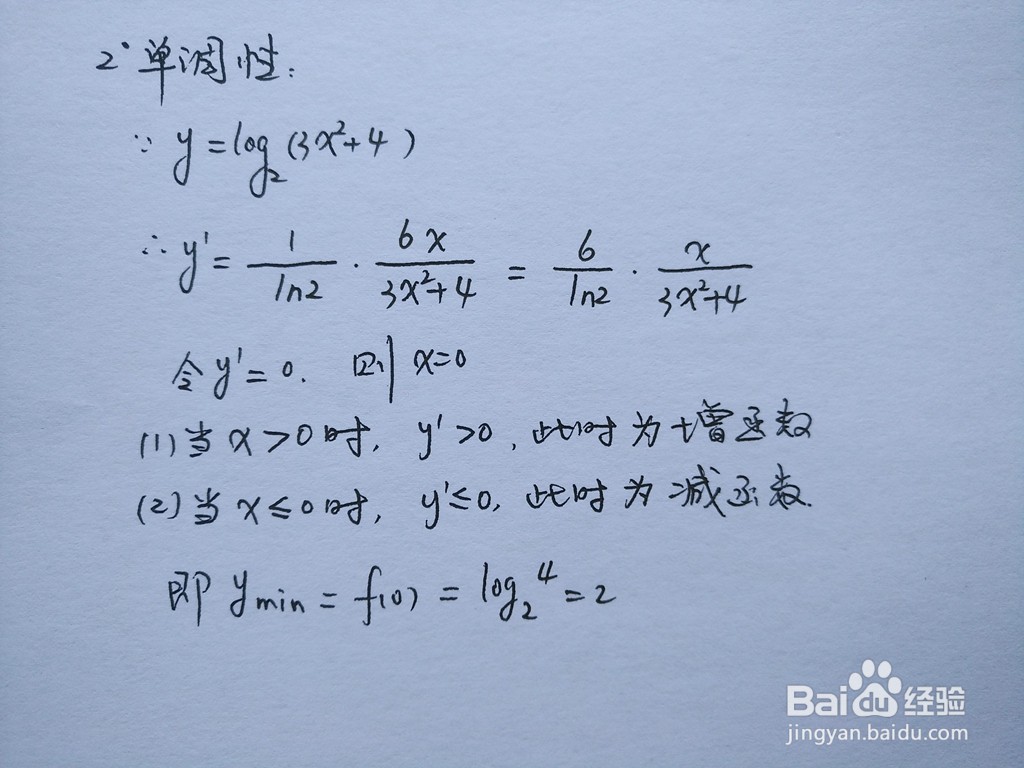 2° 单调性:
∵ y = log₂(3x²+4)
∴ y' = 1/ln2 · 6x/(3x²+4) = 6/ln2 · x/(3x²+4)
令y'=0. 则 x=0
(1) 当 x>0时, y'>0, 此时为增函数
(2) 当 x≤0时, y'≤0, 此时为减函数.
即 ymin = f(0) = log₂4 = 2
Baidu经验
jingyan.baidu.com